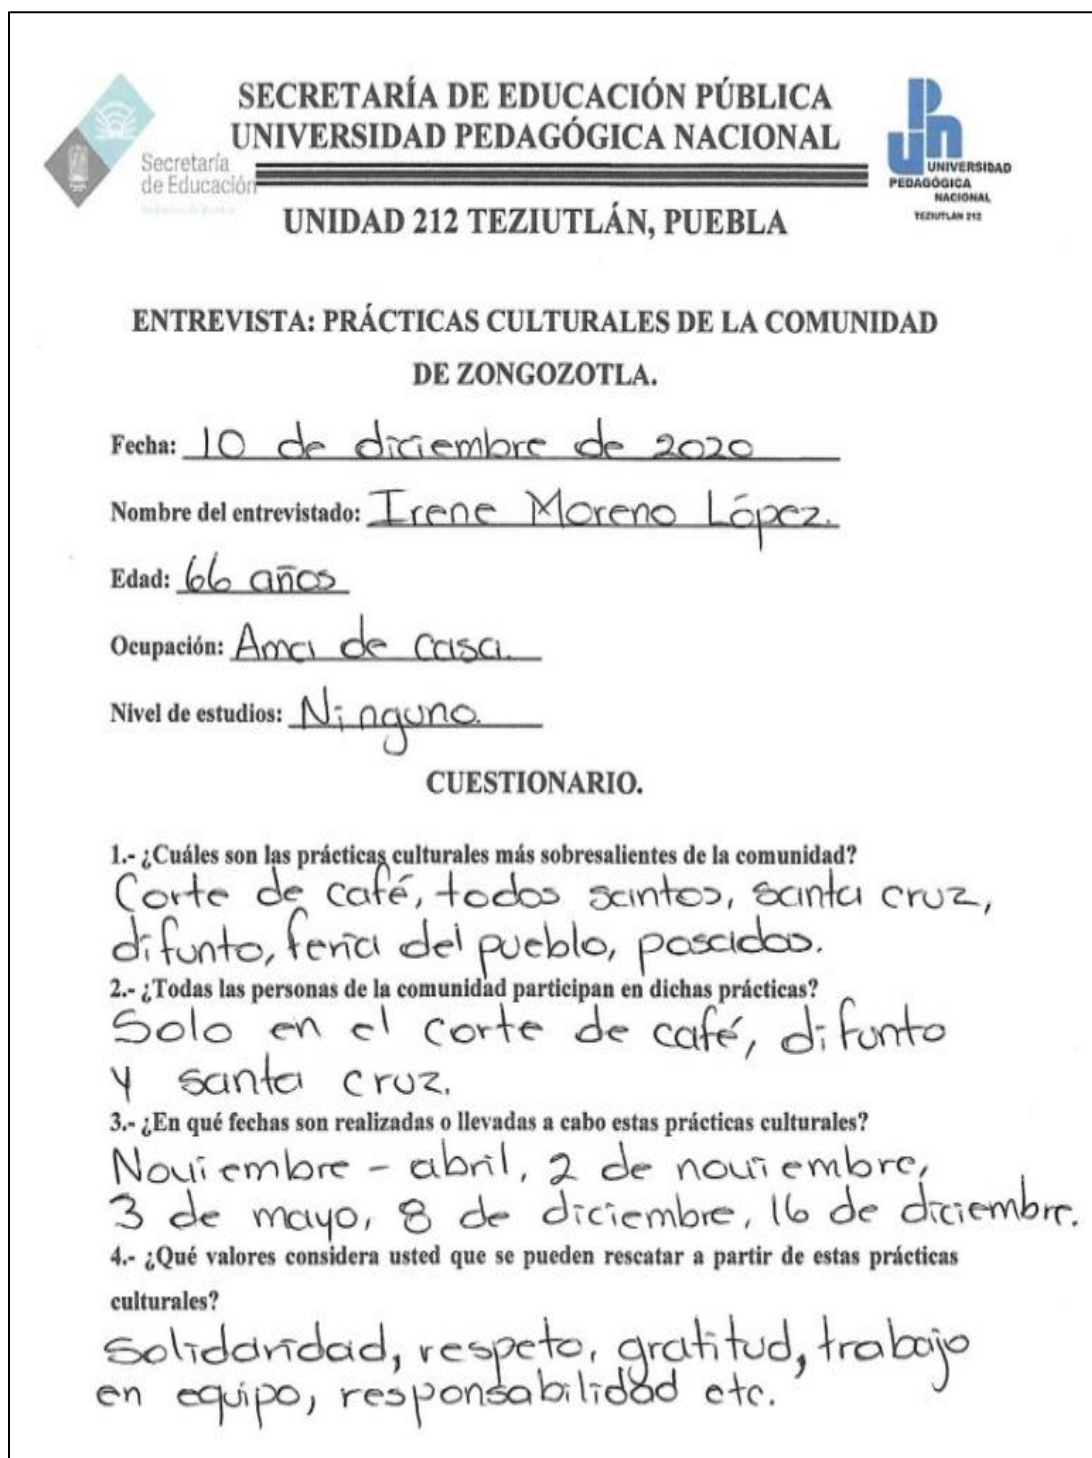 SECRETARÍA DE EDUCACIÓN PÚBLICA
UNIVERSIDAD PEDAGÓGICA NACIONAL
Secretaría
de Educación
UNIVERSIDAD
PEDAGÓGICA
NACIONAL
TEZIUTLÁN 212
UNIDAD 212 TEZIUTLÁN, PUEBLA
ENTREVISTA: PRÁCTICAS CULTURALES DE LA COMUNIDAD
DE ZONGOZOTLA.
Fecha: 10 de diciembre de 2020
Nombre del entrevistado: Irene Moreno López.
Edad: 66 años
Ocupación: Ama de casa.
Nivel de estudios: Ninguno.
CUESTIONARIO.
1.- ¿Cuáles son las prácticas culturales más sobresalientes de la comunidad?
Corte de café, todos santos, santa cruz,
difunto, feria del pueblo, posadas.
2.- ¿Todas las personas de la comunidad participan en dichas prácticas?
Solo en el corte de café, difunto
y santa cruz.
3.- ¿En qué fechas son realizadas o llevadas a cabo estas prácticas culturales?
Noviembre - abril, 2 de noviembre,
3 de mayo, 8 de diciembre, 16 de diciembre.
4.- ¿Qué valores considera usted que se pueden rescatar a partir de estas prácticas
culturales?
Solidaridad, respeto, gratitud, trabajo
en equipo, responsabilidad etc.